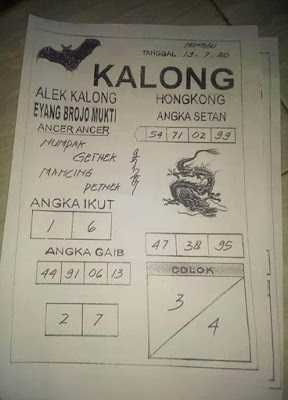 MINGGU
TANGGAL : 19-7-20
KALONG
ALEK KALONG
EYANG BROJO MUKTI
ANCER ANCER
NUMPAK
GETHEK
MANCING
DETHEK
ANGKA IKUT
1 6
ANGKA GAIB
44 91 06 13
2 7
HONGKONG
ANGKA SETAN
54 71 02 99
47 38 95
COLOK
3
4